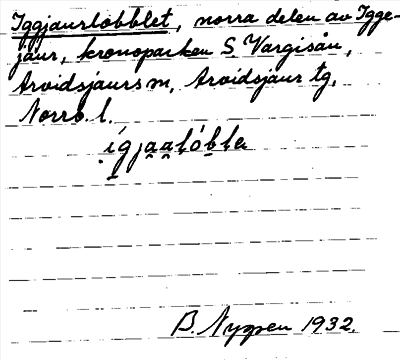 Iggjaurlobblet, norra delen av Igge-
jaur, kronoparken S. Vargisån,
Arvidsjaurs m, Arvidsjaur tg,
Norrb. l.
ígjaalóbla
B. Nygren 1932.